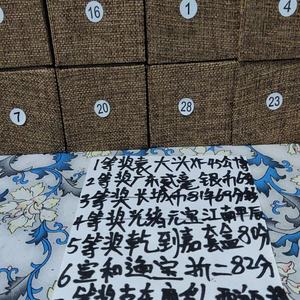 16 1 4
7 20 28 23
1等奖袁大头XF45分
2等奖广东贰毫银币6
3等奖长城币81年69分
4等奖光绪元宝江南甲辰
5等奖乾到嘉套盒80分
6宣和通宝折二82分